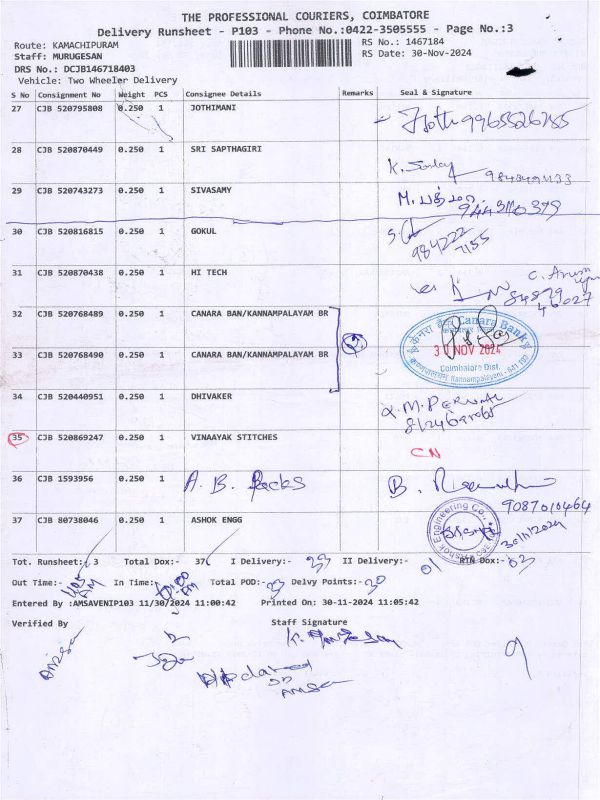 THE PROFESSIONAL COURIERS, COIMBATORE
Delivery Runsheet - P103 - Phone No.:0422-3505555 - Page No.:3
Route: KAMACHIPURAM RS No.: 1467184
Staff: MURUGESAN RS Date: 30-Nov-2024
DRS No.: DCJB146718403
Vehicle: Two Wheeler Delivery
S No Consignment No Weight PCS Consignee Details Remarks Seal & Signature
27 CJB 520795808 0.250 1 JOTHIMANI
28 CJB 520870449 0.250 1 SRI SAPTHAGIRI
29 CJB 520743273 0.250 1 SIVASAMY
30 CJB 520816815 0.250 1 GOKUL
984222
7155
31 CJB 520870438 0.250 1 HI TECH
32 CJB 520768489 0.250 1 CANARA BAN/KANNAMPALAYAM BR
Canara Bank
33 CJB 520768490 0.250 1 CANARA BAN/KANNAMPALAYAM BR
30 NOV 2024
Coimbatore Dist.
34 CJB 520440951 0.250 1 DHIVAKER
35 CJB 520869247 0.250 1 VINAAYAK STITCHES CN
36 CJB 1593956 0.250 1 A. B. Packs B.
9087010464
37 CJB 80738046 0.250 1 ASHOK ENGG
30/11/2024
Tot. Runsheet: 3 Total Dox:- 37 I Delivery:- II Delivery:- 01 RTN Dox:- 03
Out Time:- In Time:- Total POD:- Delvy Points:- 30
Entered By :AMSAVENIP103 11/30/2024 11:00:42 Printed On: 30-11-2024 11:05:42
Verified By Staff Signature